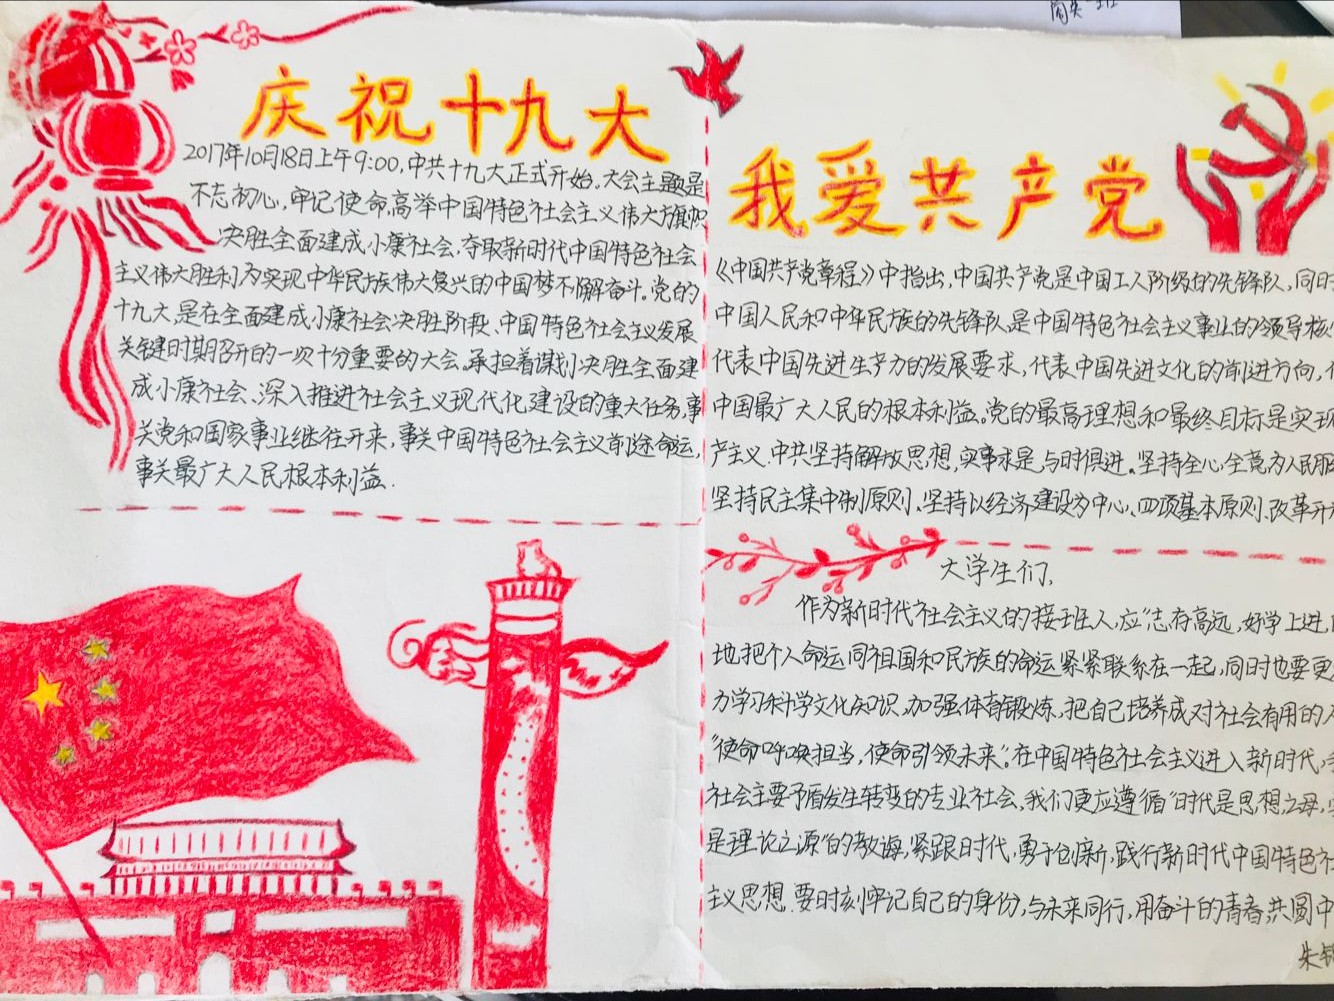 庆祝十九大
2017年10月18日上午9:00,中共十九大正式开始。大会主题是
不忘初心,牢记使命,高举中国特色社会主义伟大旗帜
决胜全面建成小康社会,夺取新时代中国特色社会
主义伟大胜利,为实现中华民族伟大复兴的中国梦不懈奋斗。党的
十九大,是在全面建成小康社会决胜阶段、中国特色社会主义发展
关键时期召开的一次十分重要的大会。承担着谋划决胜全面建
成小康社会、深入推进社会主义现代化建设的重大任务,事
关党和国家事业继往开来,事关中国特色社会主义前途命运,
事关最广大人民根本利益.
我爱共产党
《中国共产党章程》中指出,中国共产党是中国工人阶级的先锋队,同时
中国人民和中华民族的先锋队,是中国特色社会主义事业的领导核
代表中国先进生产力的发展要求,代表中国先进文化的前进方向,
中国最广大人民的根本利益。党的最高理想和最终目标是实现
产主义.中共坚持解放思想,实事求是,与时俱进。坚持全心全意为人民服
坚持民主集中制原则、坚持以经济建设为中心、四项基本原则、改革开
大学生们,
作为新时代社会主义的接班人,应"志存高远,好学上进,
地把个人命运同祖国和民族的命运紧紧联系在一起,同时也要更
力学习科学文化知识,加强体育锻炼,把自己培养成对社会有用的
"使命呼唤担当,使命引领未来"。在中国特色社会主义进入新时代,
社会主要矛盾发生转变的专业社会,我们更应遵循"时代是思想之母,
是理论之源"的教诲,紧跟时代,勇于创新,践行新时代中国特色社
主义思想.要时刻牢记自己的身份,与未来同行,用奋斗的青春,共圆中
朱